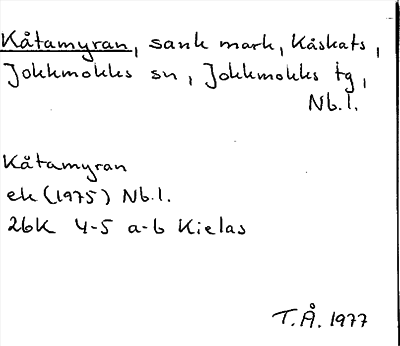 Kåtamyran, sank mark, Kåskats,
Jokkmokks sn, Jokkmokks tg,
Nb.l.
Kåtamyran
ek (1975) Nb.l.
26K 4-5 a-b Kielas
T.Å. 1977